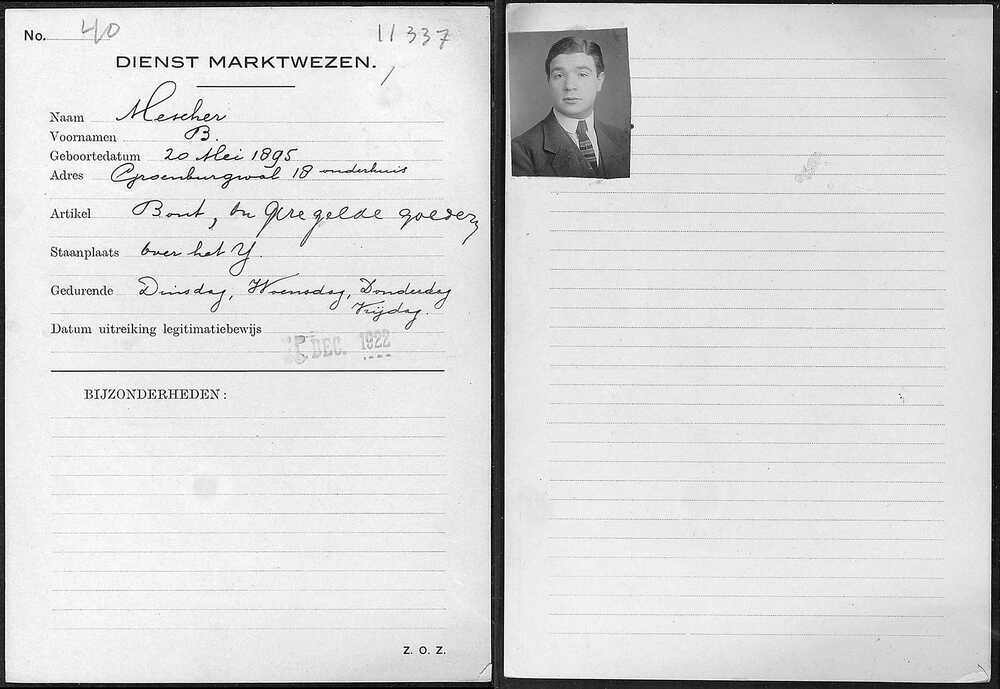 No. 40 11337
DIENST MARKTWEZEN.
Naam Mescher
Voornamen B.
Geboortedatum 20 Mei 1895
Adres Groenburgwal 18 onderhuis
Artikel Bont, en geregelde goederen
Staanplaats over het Y.
Gedurende Dinsdag, Woensdag, Donderdag
Vrijdag.
Datum uitreiking legitimatiebewijs
DEC. 1922
BIJZONDERHEDEN:
Z. O. Z.